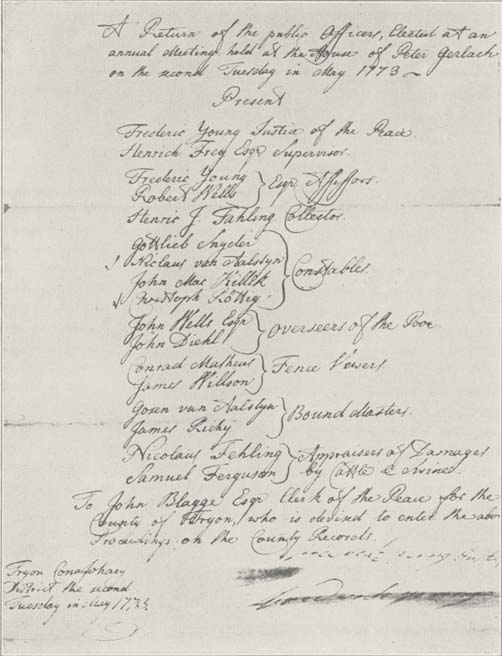 A Return of the public Officers, Elected at an
annual Meeting, held at the House of Peter Gerlach
on the second Tuesday in May 1773
Present
Frederic Young Justice of the Peace
Henrich Frey Esqr Supervisor.
Frederic Young
Robert Wells
Esqr Assessors.
Henric J. Fahling Collector.
Gottlieb Snyder
Niclaus van Aalstyn
John Mac
Constables.
John Wells Esqr
John Diehl
Overseers of the Poor
Conrad Matheus
James Willson
Fence Vewers
Gosen van Aalstyn
James Ricky
Bound Masters.
Nicolaus Fehling
Samuel Ferguson
Appraisers of Damages
by Cattle & Swine.
To John Blagge Esqr Clerk of the Peace for the
County of Tryon, who is desired to enter the abov
Proceedings on the County Records.
Tryon Conajohary
District the second
Tuesday in May 1773